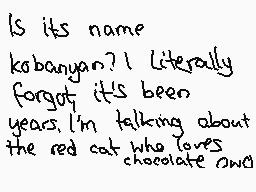 Is its name
kobanyan? I literally
forgot, it's been
years. I'm talking about
the red cat who loves
chocolate OwO